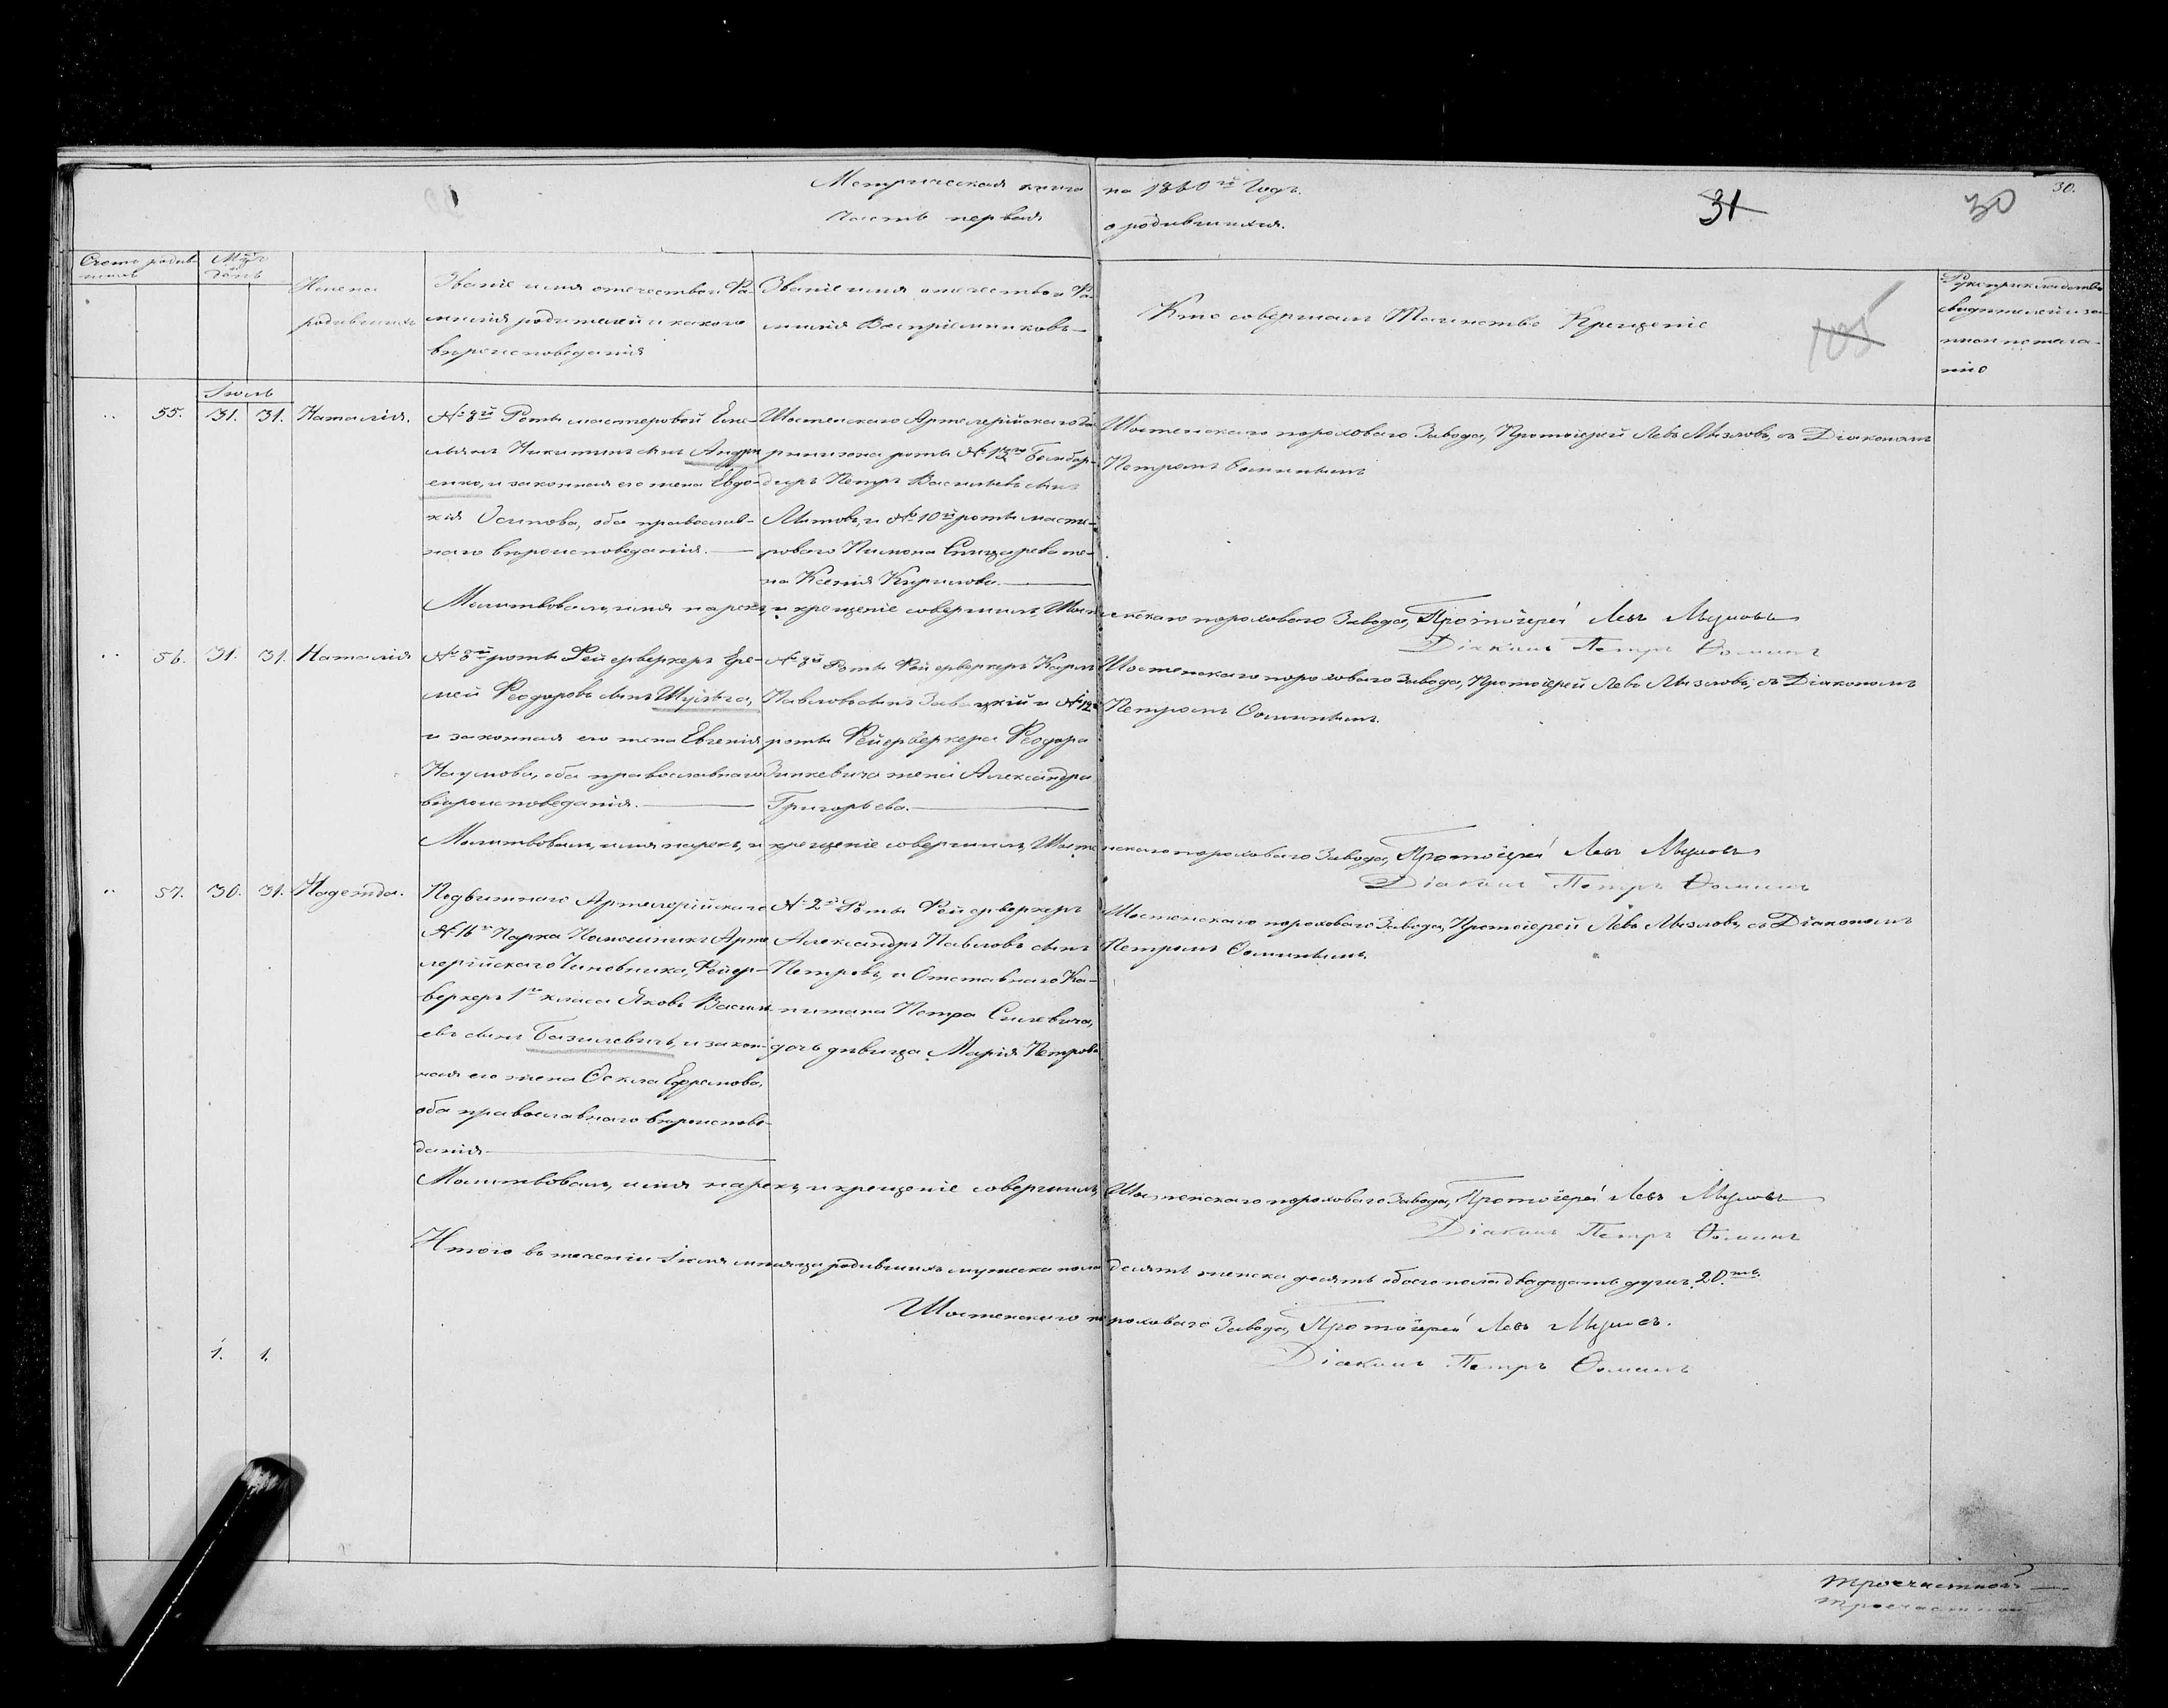 Метрическая книга на 1860й Годъ.
Часть первая о родившихся.
31
30
30.
Счетъ родив-
шихъ
Мцъ и день
Имена
родившихъ
Званіе имя отчество и Фа-
милія родителей и какого
вероисповеданія
Званіе имя отчество и Фа-
милія Воспріемниковъ
Кто совершалъ Таинство Крещеніе
105
Рукоприкладство
свидетелей и за-
писи по жела-
нію
Іюль
55. 31. 31. Наталія.
№ 8й Роты мастеровой Еме-
льянъ Никитинъ сынъ Андри
енко, и законная его жена Евдо-
кія Осипова, оба православ-
наго вероисповеданія.
Шостенскаго Артелерійскаго Га
рнизона роты № 12й Бомбар-
диръ Петръ Васильевъ сынъ
Лытовъ, и № 10й роты масте-
роваго Пимона Спицарева же-
на Ксенія Кирилова.
Шостенскаго пороховаго Завода, Протоіерей Левъ Мызловъ, съ Діакономъ
Петромъ Фоминымъ
Молитвовалъ, имя нарекъ, и крещеніе совершилъ, Шостенскаго пороховаго Завода, Протоіерей Левъ Мызловъ
Діаконъ Петръ Фоминъ
56. 31. 31. Наталія
№ 8й роты Фейерверкеръ Ере-
мей Феодоровъ сынъ Шульга,
и законная его жена Евгенія
Наумова, оба православнаго
вероисповеданія.
№ 8й Роты Фейерверкеръ Карпъ
Павловъ сынъ Завацкій и № 12й
роты Фейерверкера Феодора
Зинкевича жена Александра
Григорьева.
Шостенскаго пороховаго Завода, Протоіерей Левъ Мызловъ, съ Діакономъ
Петромъ Фоминымъ.
Молитвовалъ, имя нарекъ, и крещеніе совершилъ, Шостенскаго пороховаго Завода, Протоіерей Левъ Мызловъ
Діаконъ Петръ Фоминъ
57. 30. 31. Надежда.
Подвижнаго Артелерійскаго
№ 16й Парка Помошникъ Арте
лерійскаго Чиновника, Фейер-
веркеръ 1го класа Яковъ Васил-
евъ сынъ Базилевичъ, и закон-
ная его жена Фекла Ефремова,
оба православнаго вероиспове-
данія
№ 2й Роты Фейерверкеръ
Александръ Павловъ сынъ
Петровъ, и Отставнаго Ка-
питана Петра Силевича,
дочь девица Марія Петрова
Шостенскаго пороховаго Завода, Протоіерей Левъ Мызловъ, съ Діакономъ
Петромъ Фоминымъ.
Молитвовалъ, имя нарекъ, и крещеніе совершилъ, Шостенскаго пороховаго Завода, Протоіерей Левъ Мызловъ
Діаконъ Петръ Фоминъ
Итого въ теченіи Іюля месяца родившихъ мужеска пола десять женска десять обоего пола двадцать душъ. 20.ть
Шостенскаго пороховаго Завода, Протоіерей Левъ Мызловъ.
1. 1.
Діаконъ Петръ Фоминъ